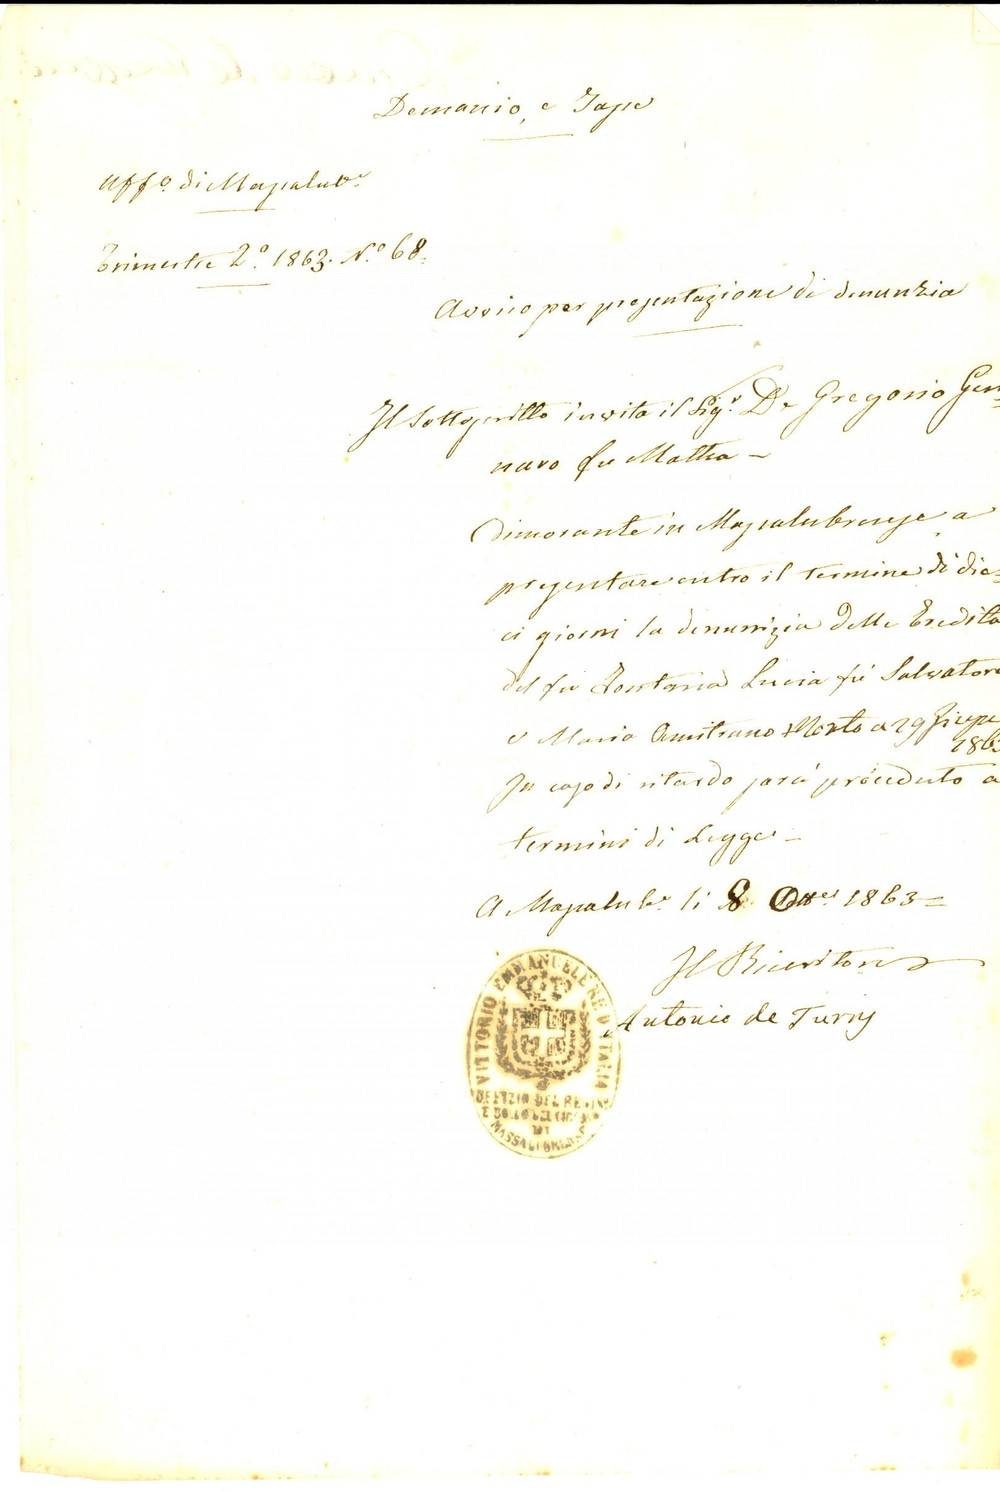 Demanio, e Tasse
Uff.º di Massalub.e
Trimestre 2.º 1863. N.º 68.
Avviso per presentazione di denunzia
Il Sottoscritto invita il Sig.r De Gregorio Gen=
naro fu Mattia
dimorante in Massalubrense a
presentare entro il termine di die=
ci giorni la denunzia delle Eredità
del fu Fontana Lucia fu Salvatore
e Maria Amitrano Morto a 29
1863
In caso di ritardo sarà proceduto a
termini di Legge
A Massalub.e li 8 Ott.e 1863=
Il Ricevitore
Antonio de Turris
VITTORIO EMMANUELE RE D'ITALIA
MASSALUBRENSE